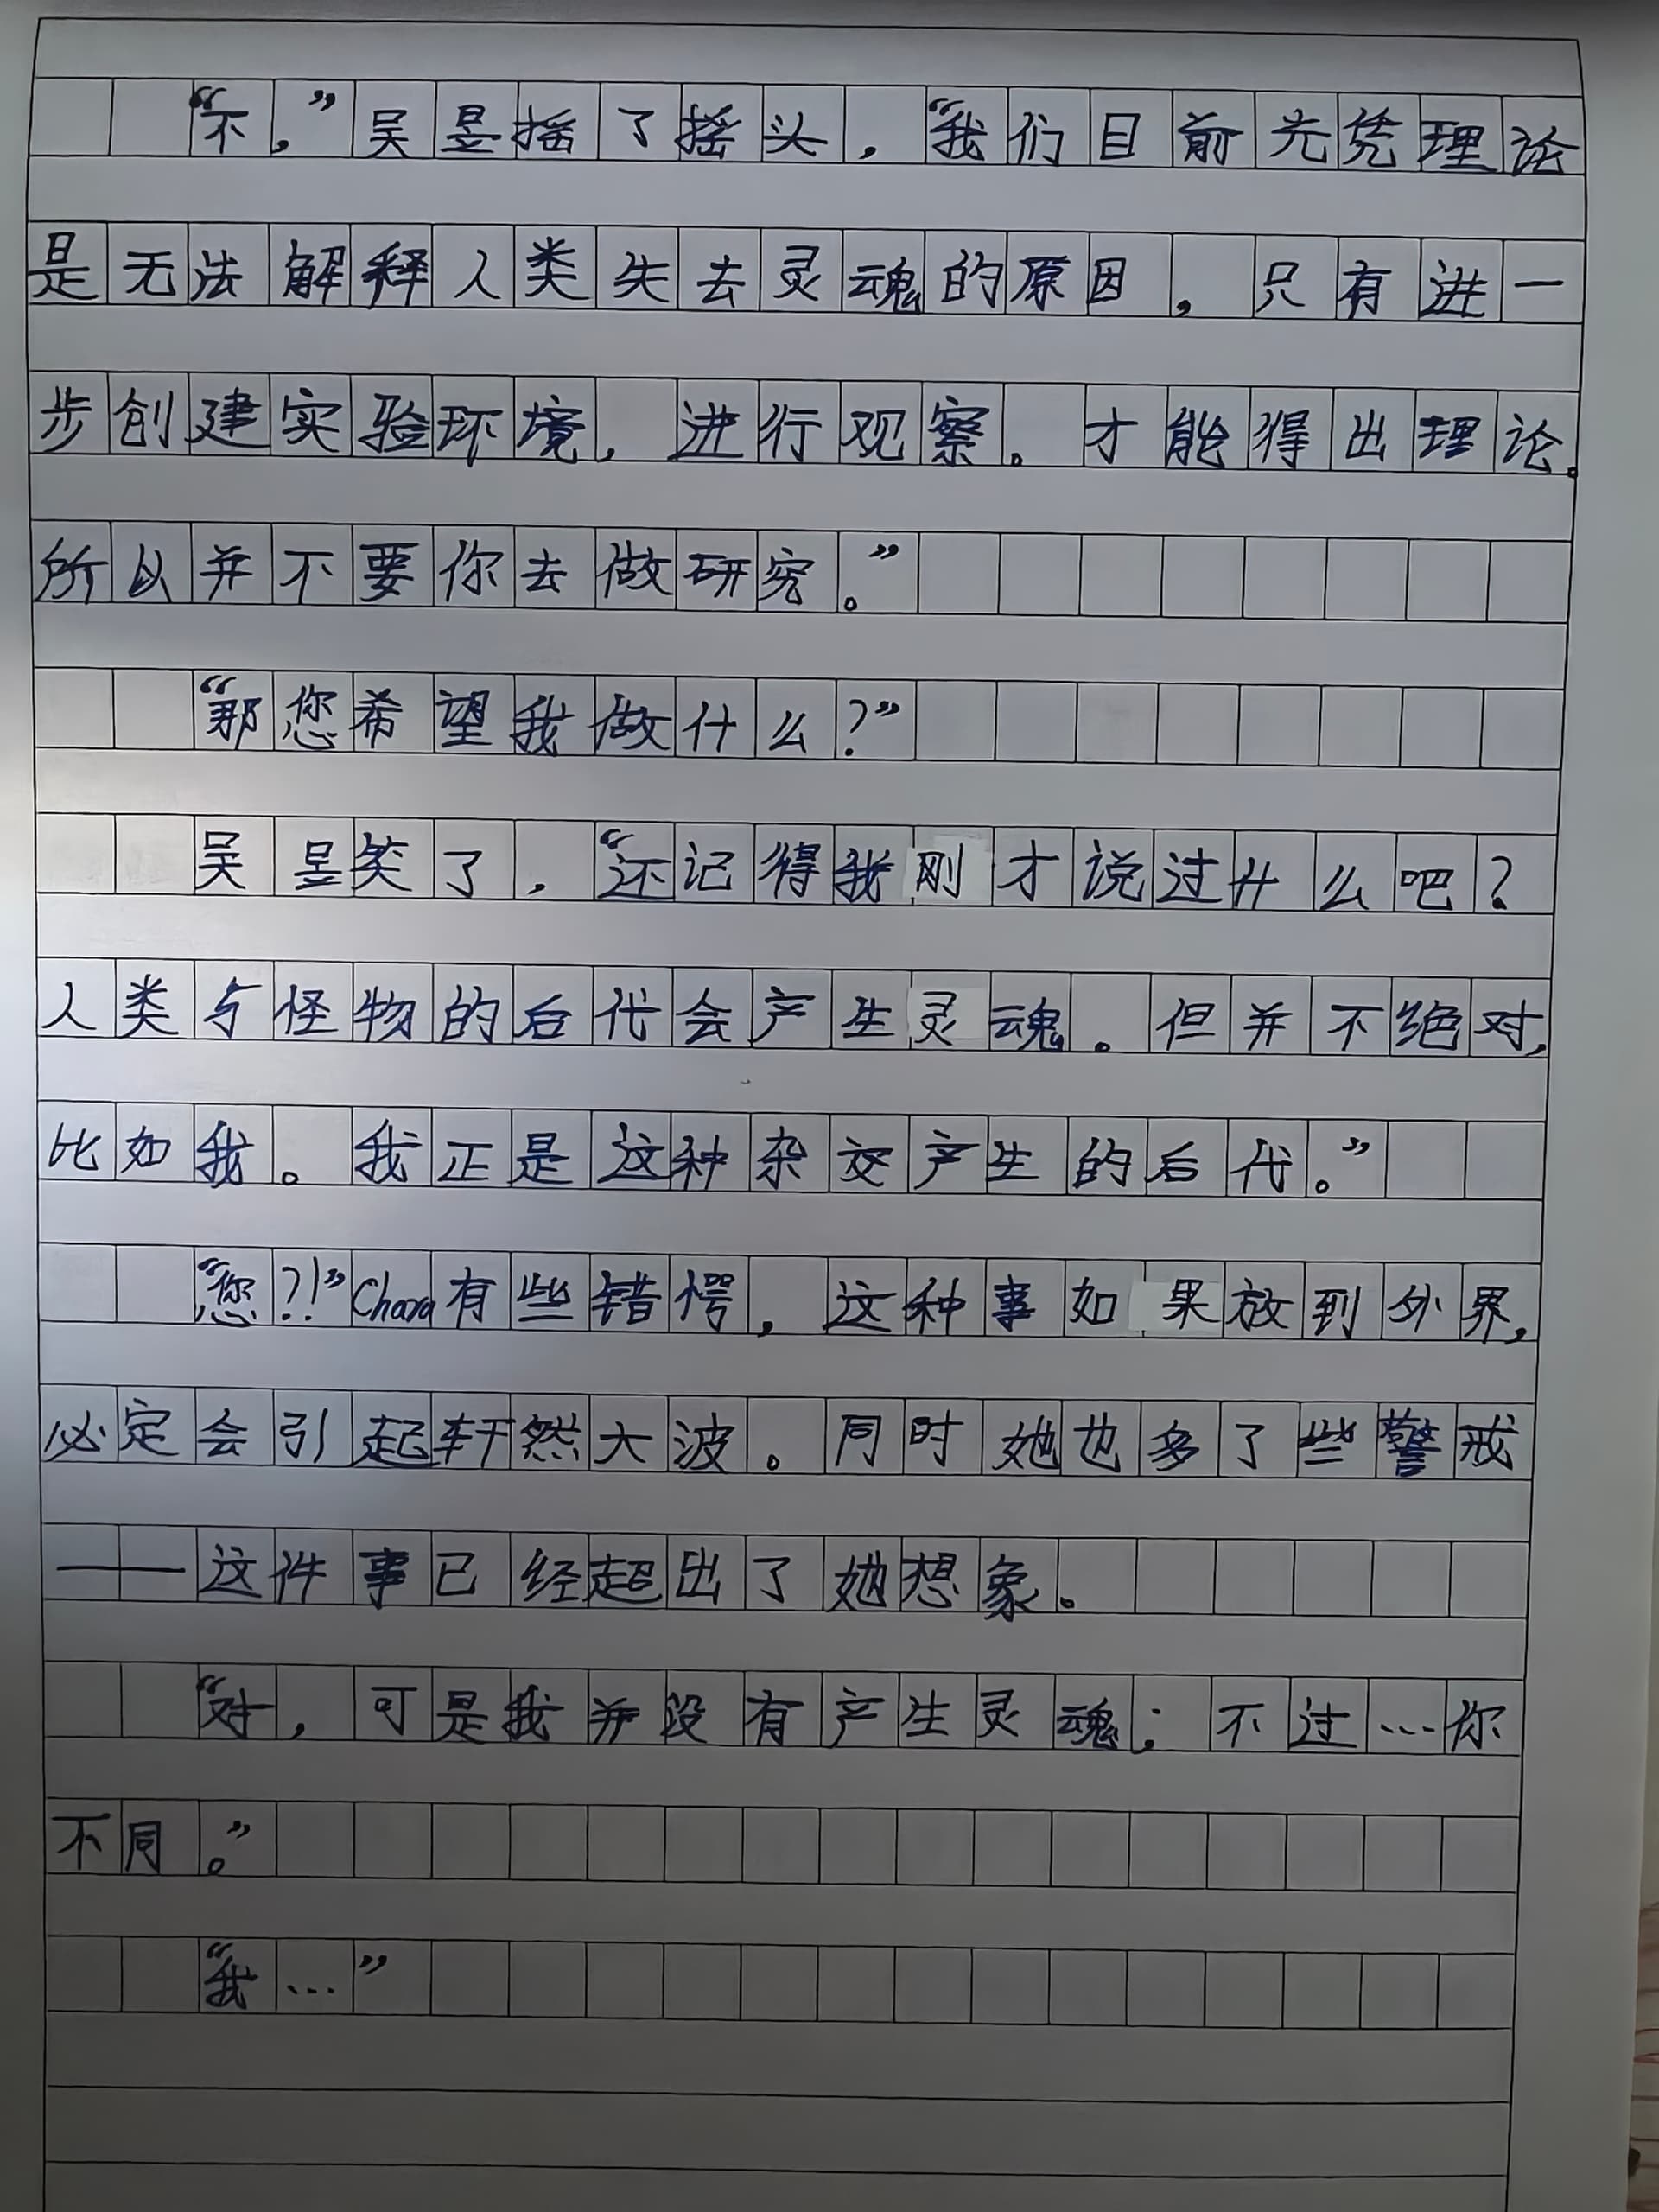 “不，”吴昱摇了摇头，“我们目前光凭理论
是无法解释人类失去灵魂的原因，只有进一
步创建实验环境，进行观察。才能得出理论。
所以并不要你去做研究。”
“那您希望我做什么？”
吴昱笑了，“还记得我刚才说过什么吧？
人类与怪物的后代会产生灵魂。但并不绝对，
比如我。我正是这种杂交产生的后代。”
“您？！”Chara有些错愕，这种事如果放到外界，
必定会引起轩然大波。同时她也多了些警戒
——这件事已经超出了她想象。
“对，可是我并没有产生灵魂；不过…你
不同。”
“我…”